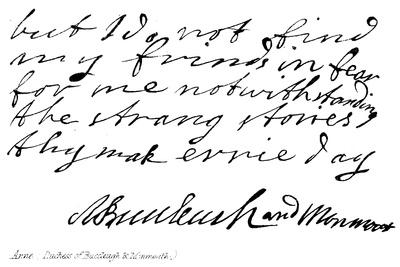 but I do not find
my frinds in fear
for me notwithstanding
the strang stories
thy mak evrie day
ABuccleugh and Monmoot
Anne (Duchess of Buccleugh & Monmouth.)